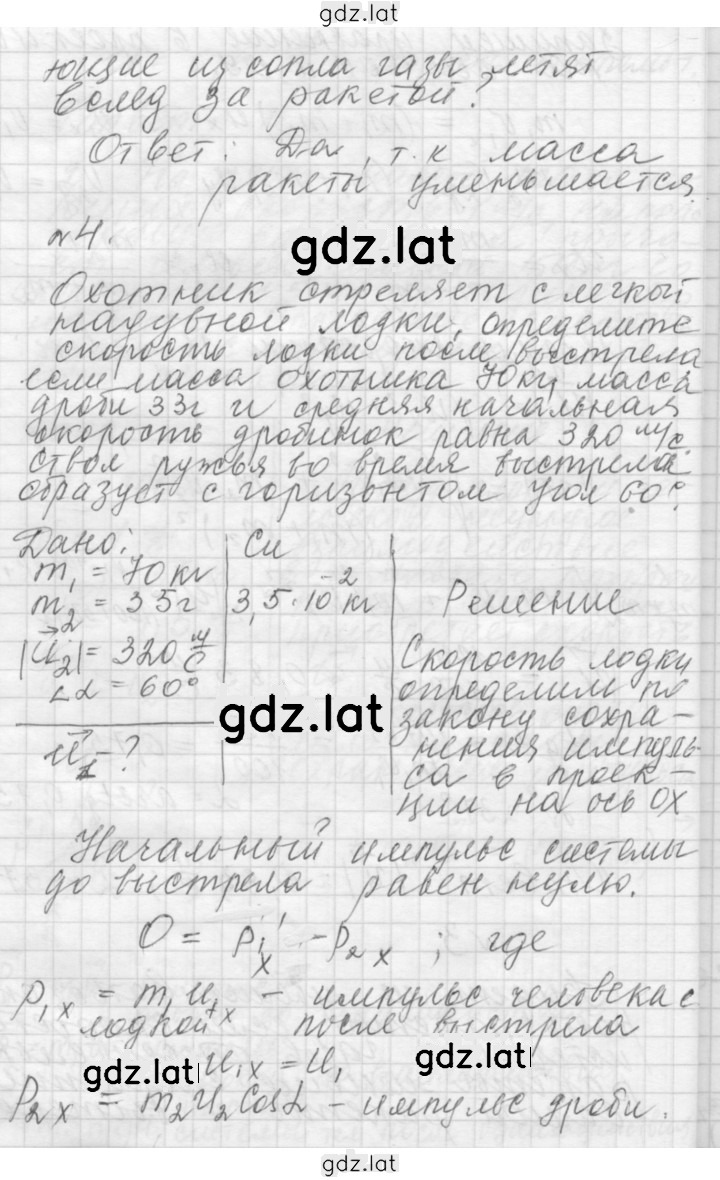 gdz.lat
ющие из сопла газы летят
вслед за ракетой?
Ответ: Да, т.к масса
ракеты уменьшается.
№4.
gdz.lat
Охотник стреляет с легкой
надувной лодки, определите
скорость лодки после выстрела
если масса охотника 70кг, масса
дроби 35г и средняя начальная
скорость дробинок равна 320 м/с.
ствол ружья во время выстрела
образует с горизонтом угол 60°.
Дано: Си
m₁ = 70кг
m₂ = 35г 3,5·10⁻² кг Решение
|u⃗₂| = 320 м/с
∠α = 60°
gdz.lat
u⃗₁ - ?
Скорость лодки
определим по
закону сохра-
нения импуль-
са в проек-
ции на ось OX
Начальный импульс системы
до выстрела равен нулю.
0 = p₁ₓ' - p₂ₓ ; где
p₁ₓ = m₁u₁ₓ - импульс человека с
лодкой после выстрела
u₁ₓ = u₁
gdz.lat
gdz.lat
p₂ₓ = m₂u₂cosα - импульс дроби.
gdz.lat